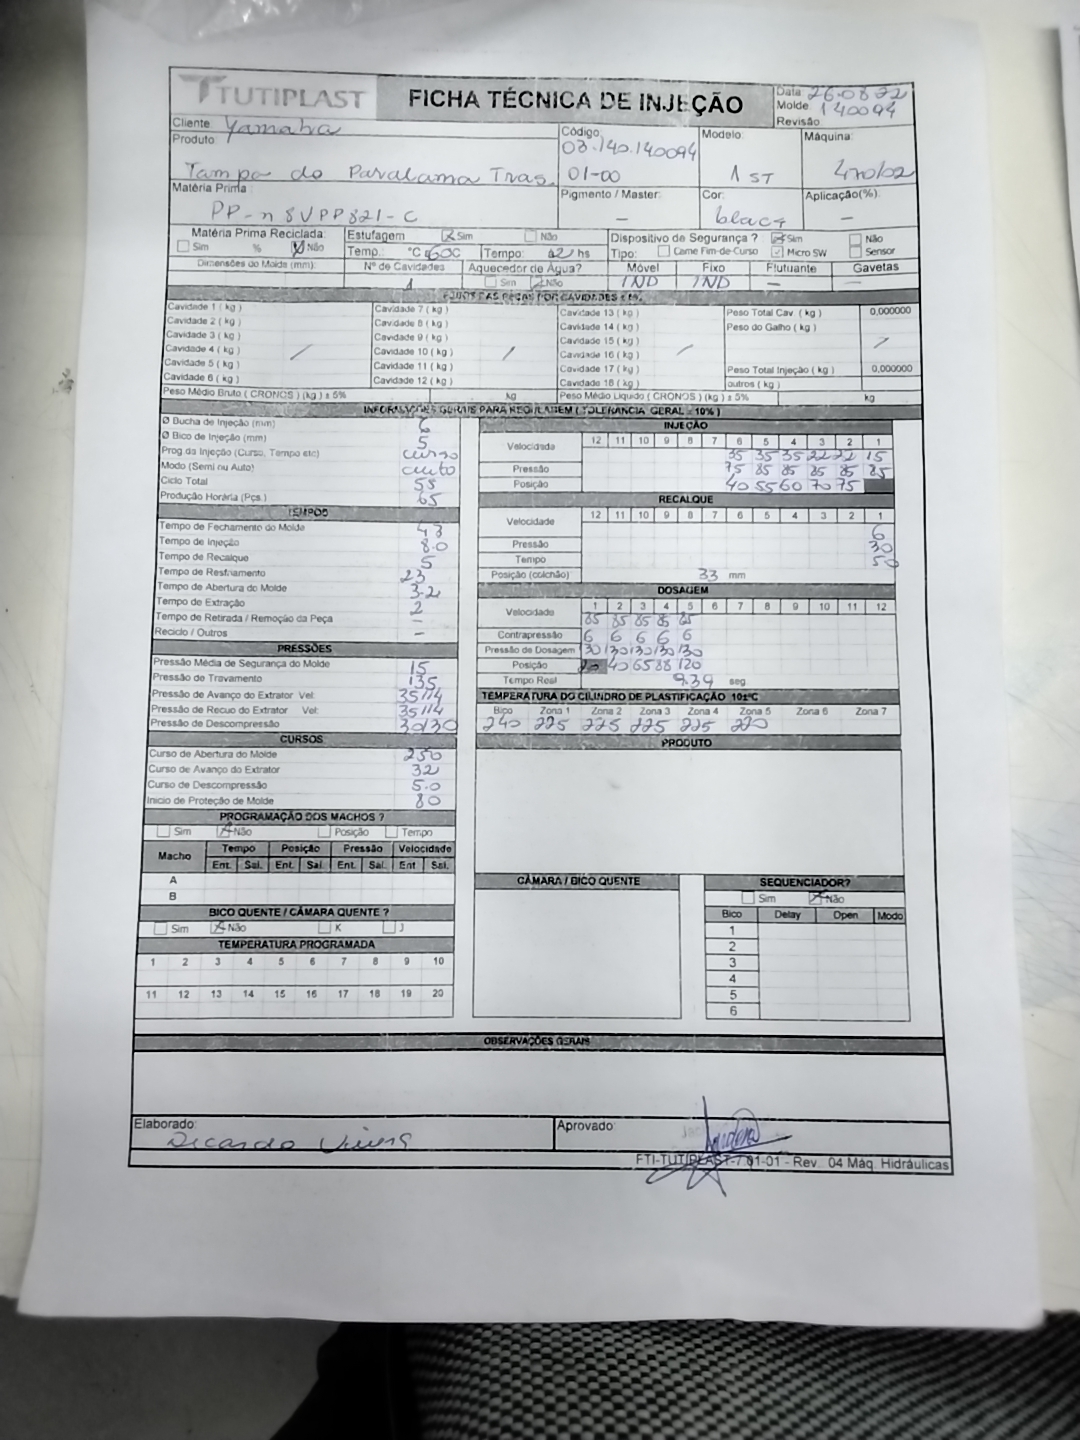 TUTIPLAST
FICHA TÉCNICA DE INJEÇÃO
Data 26.08.22
Molde 140094
Revisão
Cliente Yamaha
Produto
Tampa do Paralama Tras.
Código:
03.140.140094
01-00
Modelo
1 ST
Máquina:
470/02
Matéria Prima
PP-n 8VPP821-C
Pigmento / Master:
—
Cor:
black
Aplicação(%).
—
Matéria Prima Reciclada:
Sim % Não
Estufagem Sim Não
Temp.: °C 60C Tempo: 02 hs
Dispositivo de Segurança ? Sim Não
Tipo: Came Fim-de-Curso Micro SW Sensor
Dimensões do Molde (mm): Nº de Cavidades Aquecedor de Água? Móvel Fixo Flutuante Gavetas
1 Sim Não IND IND — —
Cavidade 1 ( kg ) Cavidade 7 ( kg ) Cavidade 13 ( kg ) Peso Total Cav ( kg ) 0,000000
Cavidade 2 ( kg ) Cavidade 8 ( kg ) Cavidade 14 ( kg ) Peso do Galho ( kg )
Cavidade 3 ( kg ) Cavidade 9 ( kg ) Cavidade 15 ( kg )
Cavidade 4 ( kg ) Cavidade 10 ( kg ) Cavidade 16 ( kg )
Cavidade 5 ( kg ) Cavidade 11 ( kg ) Cavidade 17 ( kg ) Peso Total Injeção ( kg ) 0,000000
Cavidade 6 ( kg ) Cavidade 12 ( kg ) Cavidade 18 ( kg ) outros ( kg )
Peso Médio Bruto ( CRONOS ) (kg ) ± 5% kg Peso Médio Liquido ( CRONOS ) (kg ) ± 5% kg
INFORMAÇÕES GERAIS PARA REGULAGEM ( TOLERANCIA GERAL ± 10% )
Ø Bucha de Injeção (mm) 6
Ø Bico de Injeção (mm) 5
Prog da Injeção (Curso, Tempo etc) curso
Modo (Semi ou Auto) auto
Ciclo Total 55
Produção Horária (Pçs.) 65
TEMPOS
Tempo de Fechamento do Molde 4.3
Tempo de Injeção 8.0
Tempo de Recalque 5
Tempo de Resfriamento 23
Tempo de Abertura do Molde 3.2
Tempo de Extração 2
Tempo de Retirada / Remoção da Peça —
Reciclo / Outros —
PRESSÕES
Pressão Média de Segurança do Molde 15
Pressão de Travamento 135
Pressão de Avanço do Extrator Vel: 35/14
Pressão de Recuo do Extrator Vel: 35/14
Pressão de Descompressão 30/30
CURSOS
Curso de Abertura do Molde 250
Curso de Avanço do Extrator 32
Curso de Descompressão 5.0
Inicio de Proteção de Molde 80
PROGRAMAÇÃO DOS MACHOS ?
Sim Não Posição Tempo
Macho Tempo Posição Pressão Velocidade
Ent. Sai. Ent. Sai. Ent. Sai. Ent Sai.
A
B
BICO QUENTE / CÂMARA QUENTE ?
Sim Não K J
TEMPERATURA PROGRAMADA
1 2 3 4 5 6 7 8 9 10
11 12 13 14 15 16 17 18 19 20
INJEÇÃO
Velocidade 12 11 10 9 8 7 6 5 4 3 2 1
35 35 35 22 22 15
Pressão 75 85 85 85 85 85
Posição 40 55 60 70 75
RECALQUE
Velocidade 12 11 10 9 8 7 6 5 4 3 2 1
6
Pressão 30
Tempo 50
Posição (colchão) 33 mm
DOSAGEM
Velocidade 1 2 3 4 5 6 7 8 9 10 11 12
85 85 85 85 65
Contrapressão 6 6 6 6 6
Pressão de Dosagem 130 130 130 130 130
Posição 40 65 88 120
Tempo Real 9.39 seg
TEMPERATURA DO CILINDRO DE PLASTIFICAÇÃO 10±ºC
Bico Zona 1 Zona 2 Zona 3 Zona 4 Zona 5 Zona 6 Zona 7
240 225 225 225 225 220
PRODUTO
CÂMARA / BICO QUENTE
SEQUENCIADOR?
Sim Não
Bico Delay Open Modo
1
2
3
4
5
6
OBSERVAÇÕES GERAIS
Elaborado:
Ricardo Vieira
Aprovado:
FTI-TUTIPLAST-7.01-01 - Rev.: 04 Máq. Hidráulicas